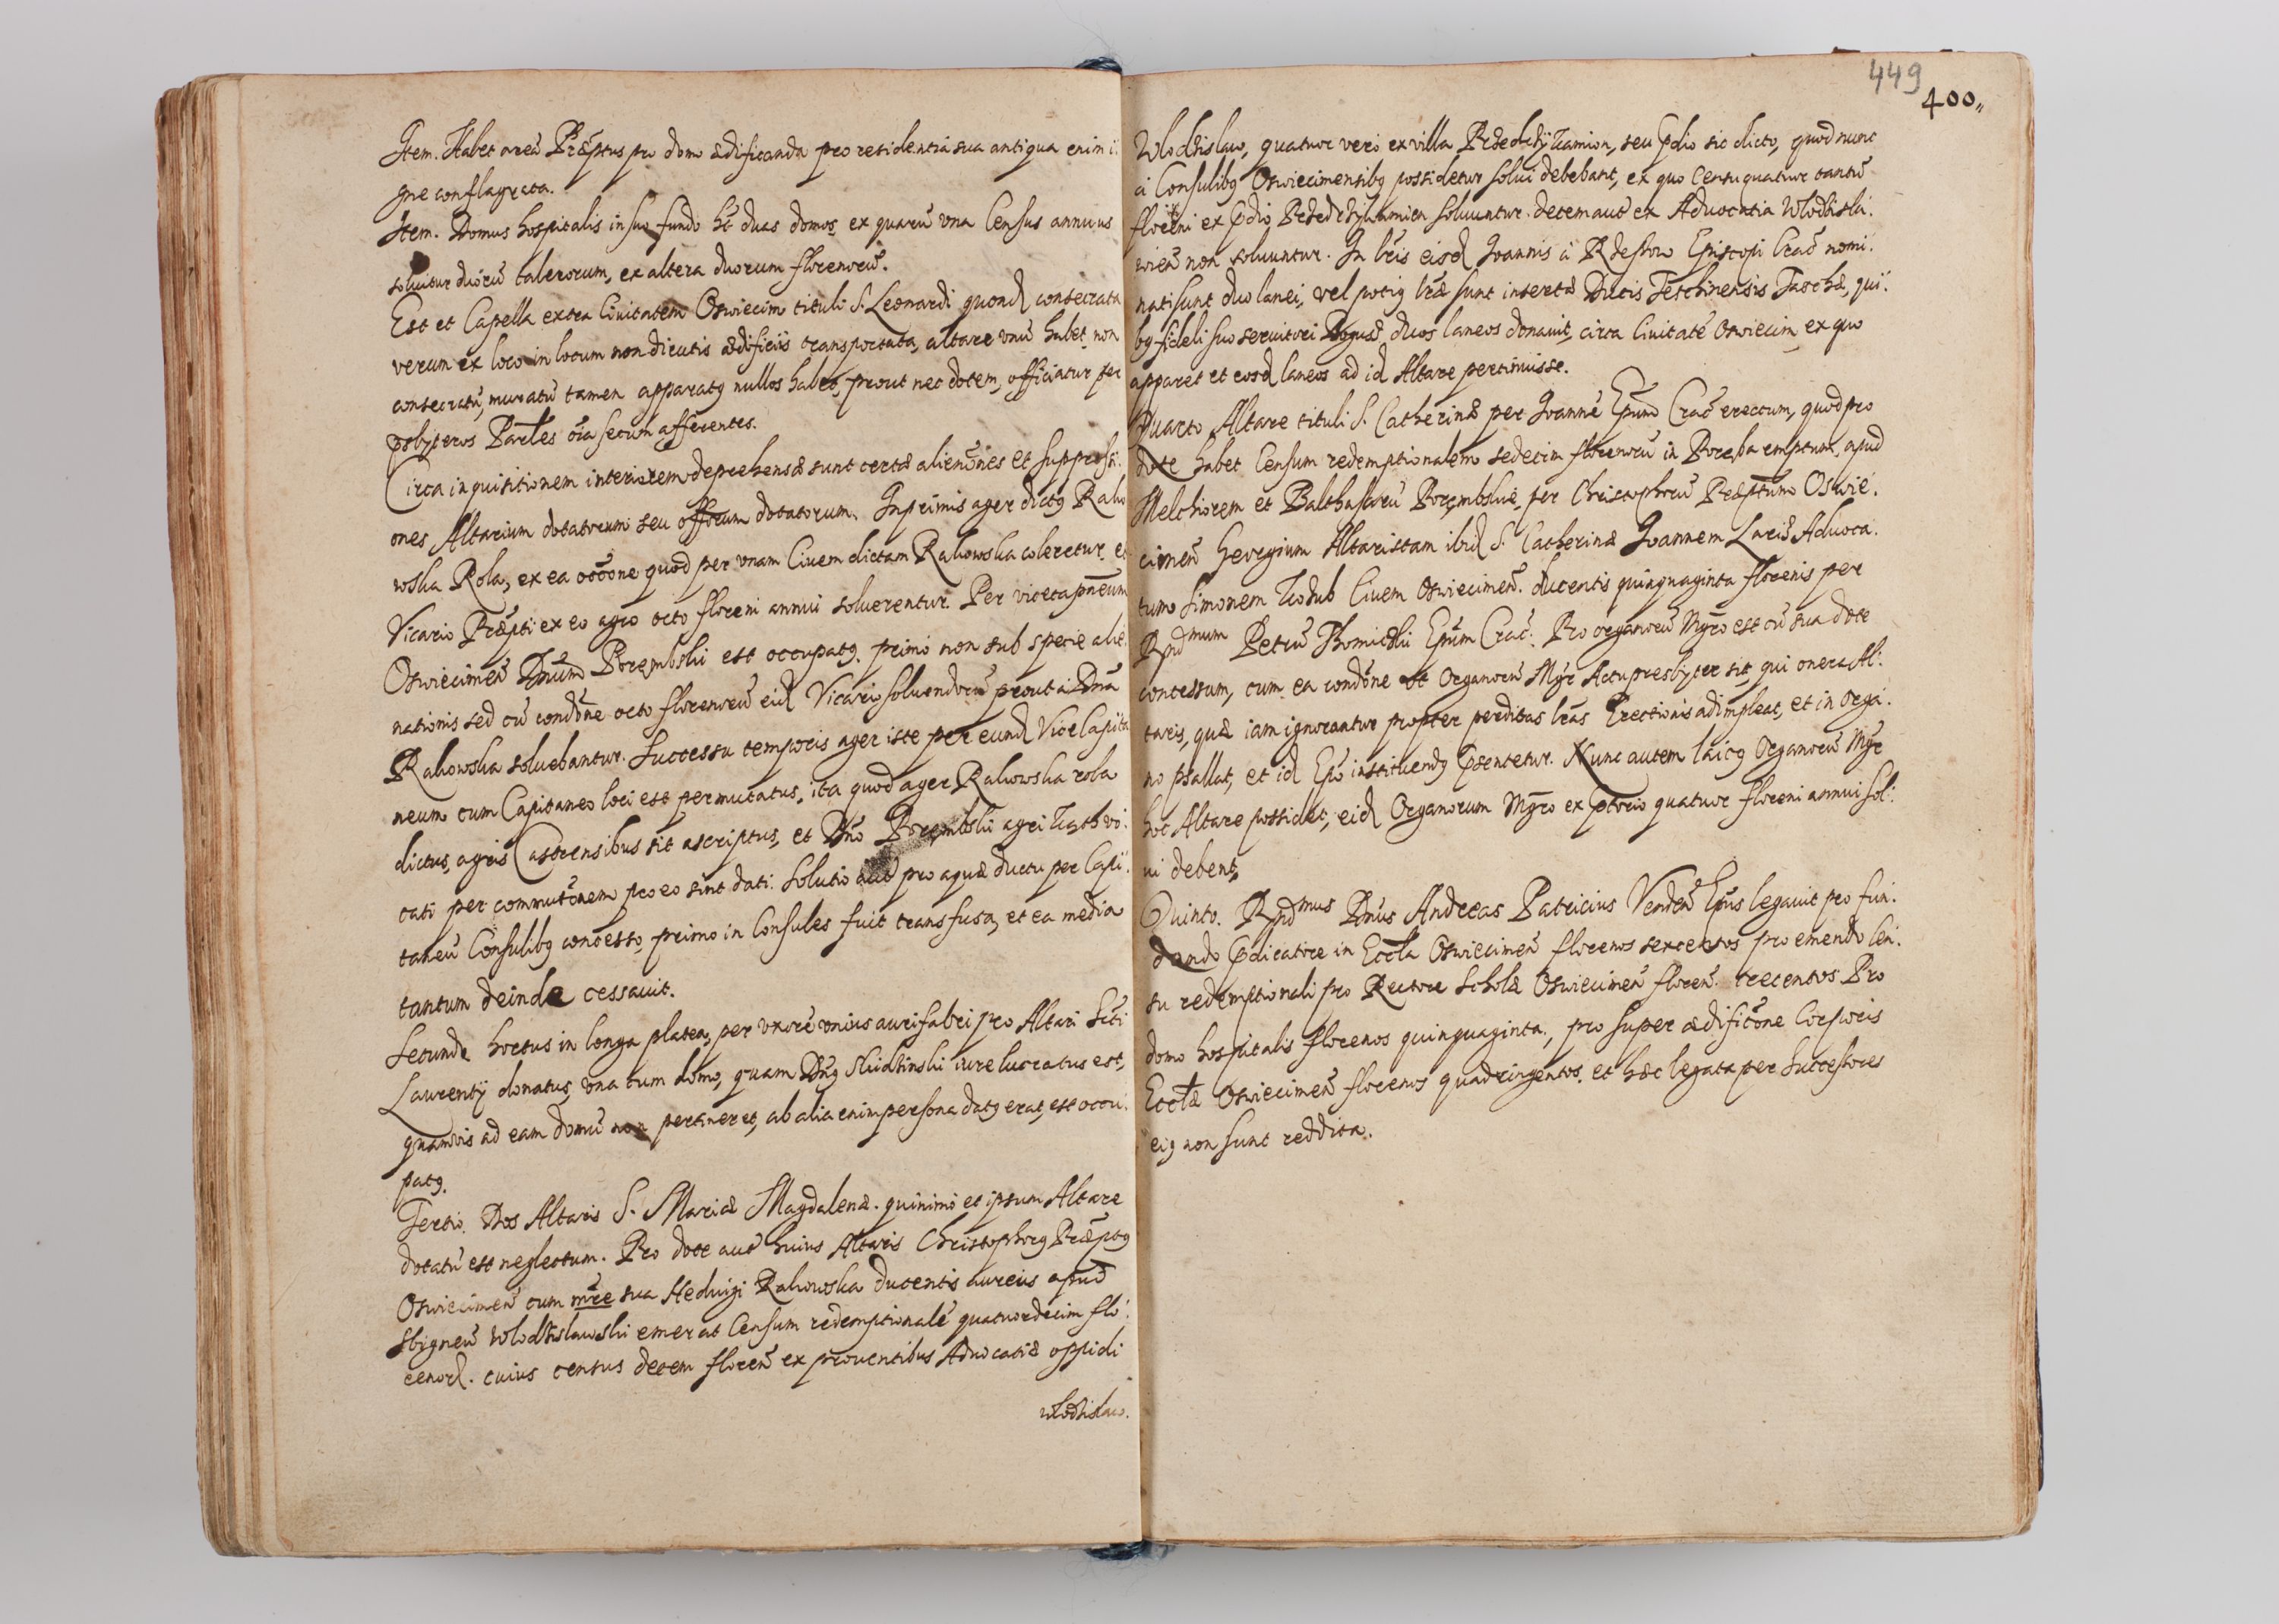 Item. Habet areã Præptus pro domo ædificanda pro residentia sua antiqua enim i:
gne conflagrata.
Item. Domus hospitalis in suo fundo hẽt duas domos, ex quarũ vna Census annuus
soluitur duorũ talerorum, ex altera duorum florenorũ.
Est et Capella extra Ciuitatem Oswiecim tituli S. Leonardi quond consecrata
verum ex loco in locum non dicatis ædificijs transportata, altare vnũ habet non
consecratũ, muratũ tamen apparatg nullos habet, prout nec dotem, officiatur per
pbsyteros Parles oĩa secum afferentes.
Circa inquisitionem interiorem deprehensæ sunt certæ alienõnes et suppressi:
ones Altarium dotatorum seu offorum dotatorum. Inprimis ager dictg Rako
wska Rola, ex ea occõne quod per vnam Ciuem dictam Rakowska coleretur, et
Vicario Præpti ex eo agro octo floreni annui soluerentur. Per vicecapneum
Oswiecimeñ Dnũm Porembski est occupatg, primò non sub specie alie:
nationis sed cũ condõne octo florenorũ eid Vicario soluendorũ prout à Dña
Rakowska soluebantur. Successu temporis ager iste per eund ViceCapita
neum cum Capitaneo loci est permutatus, ita quod ager Rakowska rola
dictus, agris Castrensibus sit ascriptus, et Dño Porembski agri
cati per commutõnem pro eo sint dati. Solutio aut pro aquæ ductu per Capi:
taneũ Consulibg concesso, primo in Consules fuit transfusa, et ea media
tantum deinde cessauit.
Secundo hortus in longa platea, per vxorẽ vnius aurifabri pro Altari Scti
Laurentij donatus, vna cum domo, quam Dng Skidzinski iure lucratus est,
quamuis ad eam domũ non pertineret, ab alia enim persona datg erat, est occu:
patg.
Tertio. Dos Altaris S. Mariæ Magdalenæ. quinimò et ipsum Altare
dotatũ est neglectum. Pro dote aut huius Altaris Christophorg Præptg
Oswiecimeñ cum mr̃e sua Heduigi Rakowska ducentis aureis apud
Sbigneũ Wlodzislawski emerat Censum redemptionalẽ quatuordecim flo:
renor. cuius census decem floreñ ex prouentibus Aduocatiæ oppidi
wlodzislaw.
449
400,,
Wlodzislaw, quatuor verò ex villa Przedrzÿkamion, seu pdio sic dicto, quod nunc
à Consulibg Oswiecimensibg possidetur solui debebant, ex quo Censu quatuor tantũ
floreni ex pdio soluuntur. decem aut ex Aduocatia Wlodzisla:
wieñ non soluuntur. In lr̃is eisd Joannis à Rzeszow Episcopi Crac̃ nomi:
nati sunt duo lanei, vel potig lr̃æ sunt insertæ Ducis Teschinensis qui:
bg fideli suo seruitori duos laneos donauit, circa Ciuitatẽ Oswiecim, ex quo
apparet et eosd laneos ad id Altare pertinuisse.
Quarto Altare tituli S. Catherinæ per Joannẽ Epum Crac̃ erectum, quod pro
dote habet Censum redemptionalem sedecim florenorũ in Poreba emptum, apud
Melchiorem et Balthasarũ Porembskie, per Christophorũ Præptum Oswie:
cimeñ Georgium Altaristam ibid S. Catherinæ Joannem Aduoca:
tum Simonem Kodub Ciuem Oswiecimeñ. ducentis quinquaginta florenis per
Rndmum Petrũ Thomicki Epũm Crac̃: Pro organorũ Mgr̃o est cũ sua dote
concessum, cum ea condõne vt Organorũ Mgr̃ Actu presbyter sit, qui onera Al:
taris, quæ iam ignorantur propter perditas lr̃as Erectionis adimpleat, et in orga:
no psallat, et id Epo instituendg psentetur. Nunc autem laicg Organorũ Mgr̃
hoc Altare possidet, eid Organorum Mgr̃o ex ptorio quatuor floreni annui sol:
ui debent,
Quinto. Rndmus Dnus Andreas Patricius Vendeñ Epũs legauit pro fun:
dando pdicatore in Eccla Oswiecimeñ florenos sexcentos pro emendo Cen:
su redemptionali pro Rectore Scholæ Oswiecimeñ floreñ. trecentos. Pro
domo hospitalis florenos quinquaginta, pro super ædificõne Corporis
Ecclæ Oswiecimeñ florenos quadringentos, et hæc legata per Successores
eig non sunt reddita.